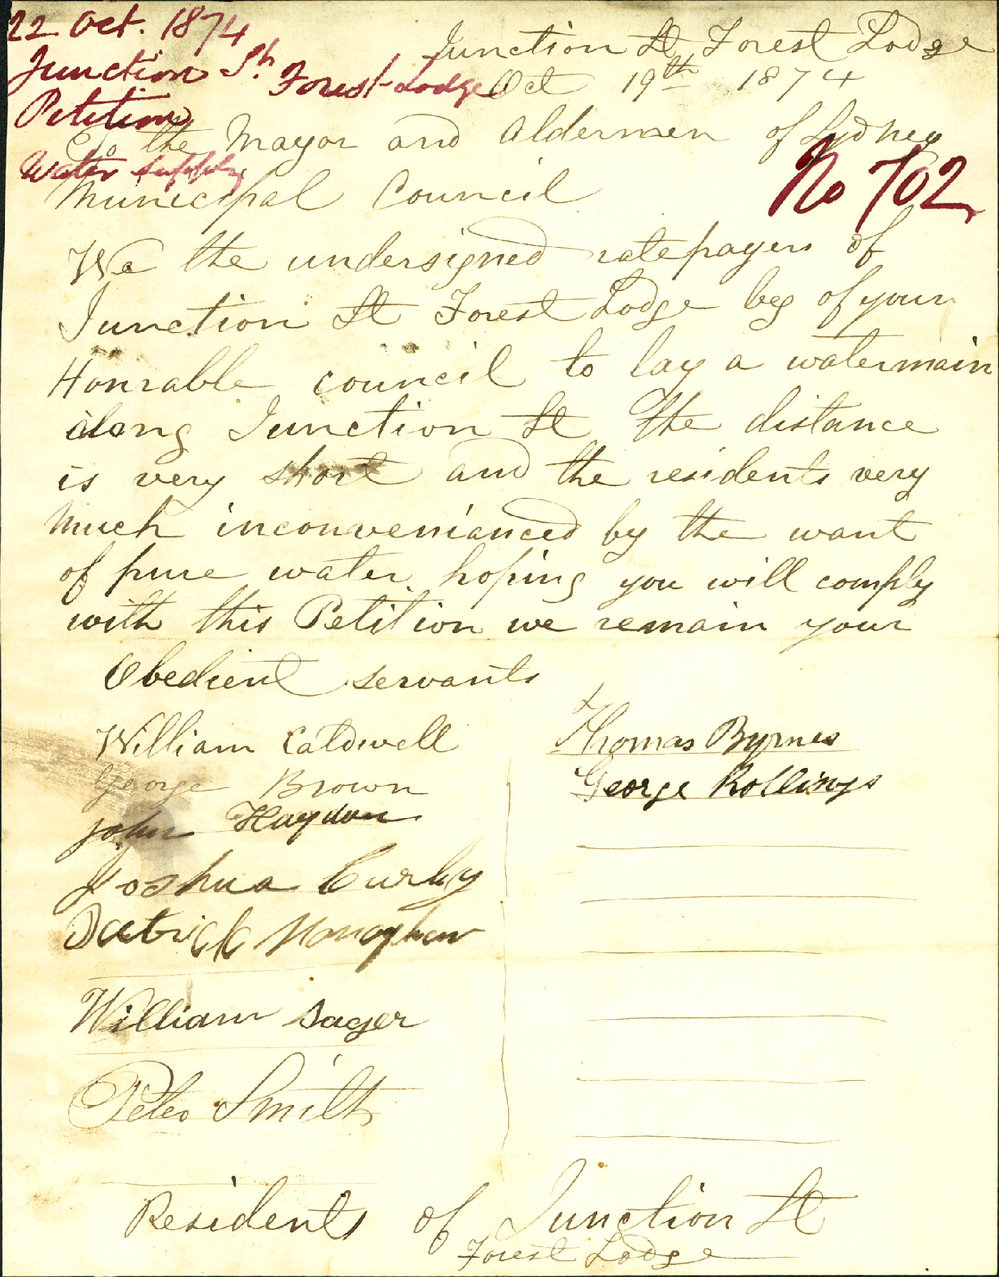 22 Oct. 1874
Junction St Forest Lodge
Petition
Water supply
No 702
Junction St Forest Lodge
Oct 19th 1874
To the Mayor and Aldermen of Sydney
Municipal Council
We the undersigned ratepayers of
Junction St Forest Lodge beg of your
Honrable council to lay a watermain
along Junction St The distance
is very short and the residents very
much inconvenianced by the want
of pure water hoping you will comply
with this Petition we remain your
Obedient servants
William Caldwell
George Brown
John Haydon
Joshua Curley
Patrick Monaghan
William Sager
Peter Smith
Thomas Byrnes
George Rollings
Residents of Junction St
Forest Lodge